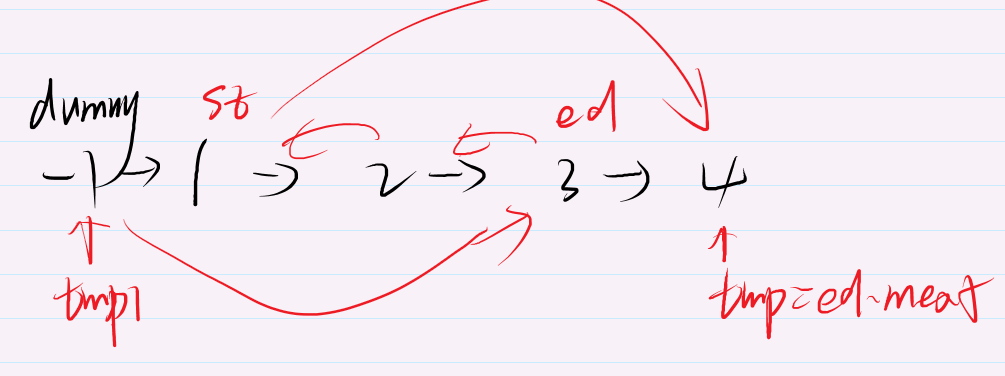 dummy st ed
-1 → 1 → 2 → 3 → 4
tmp1 tmp=ed.next